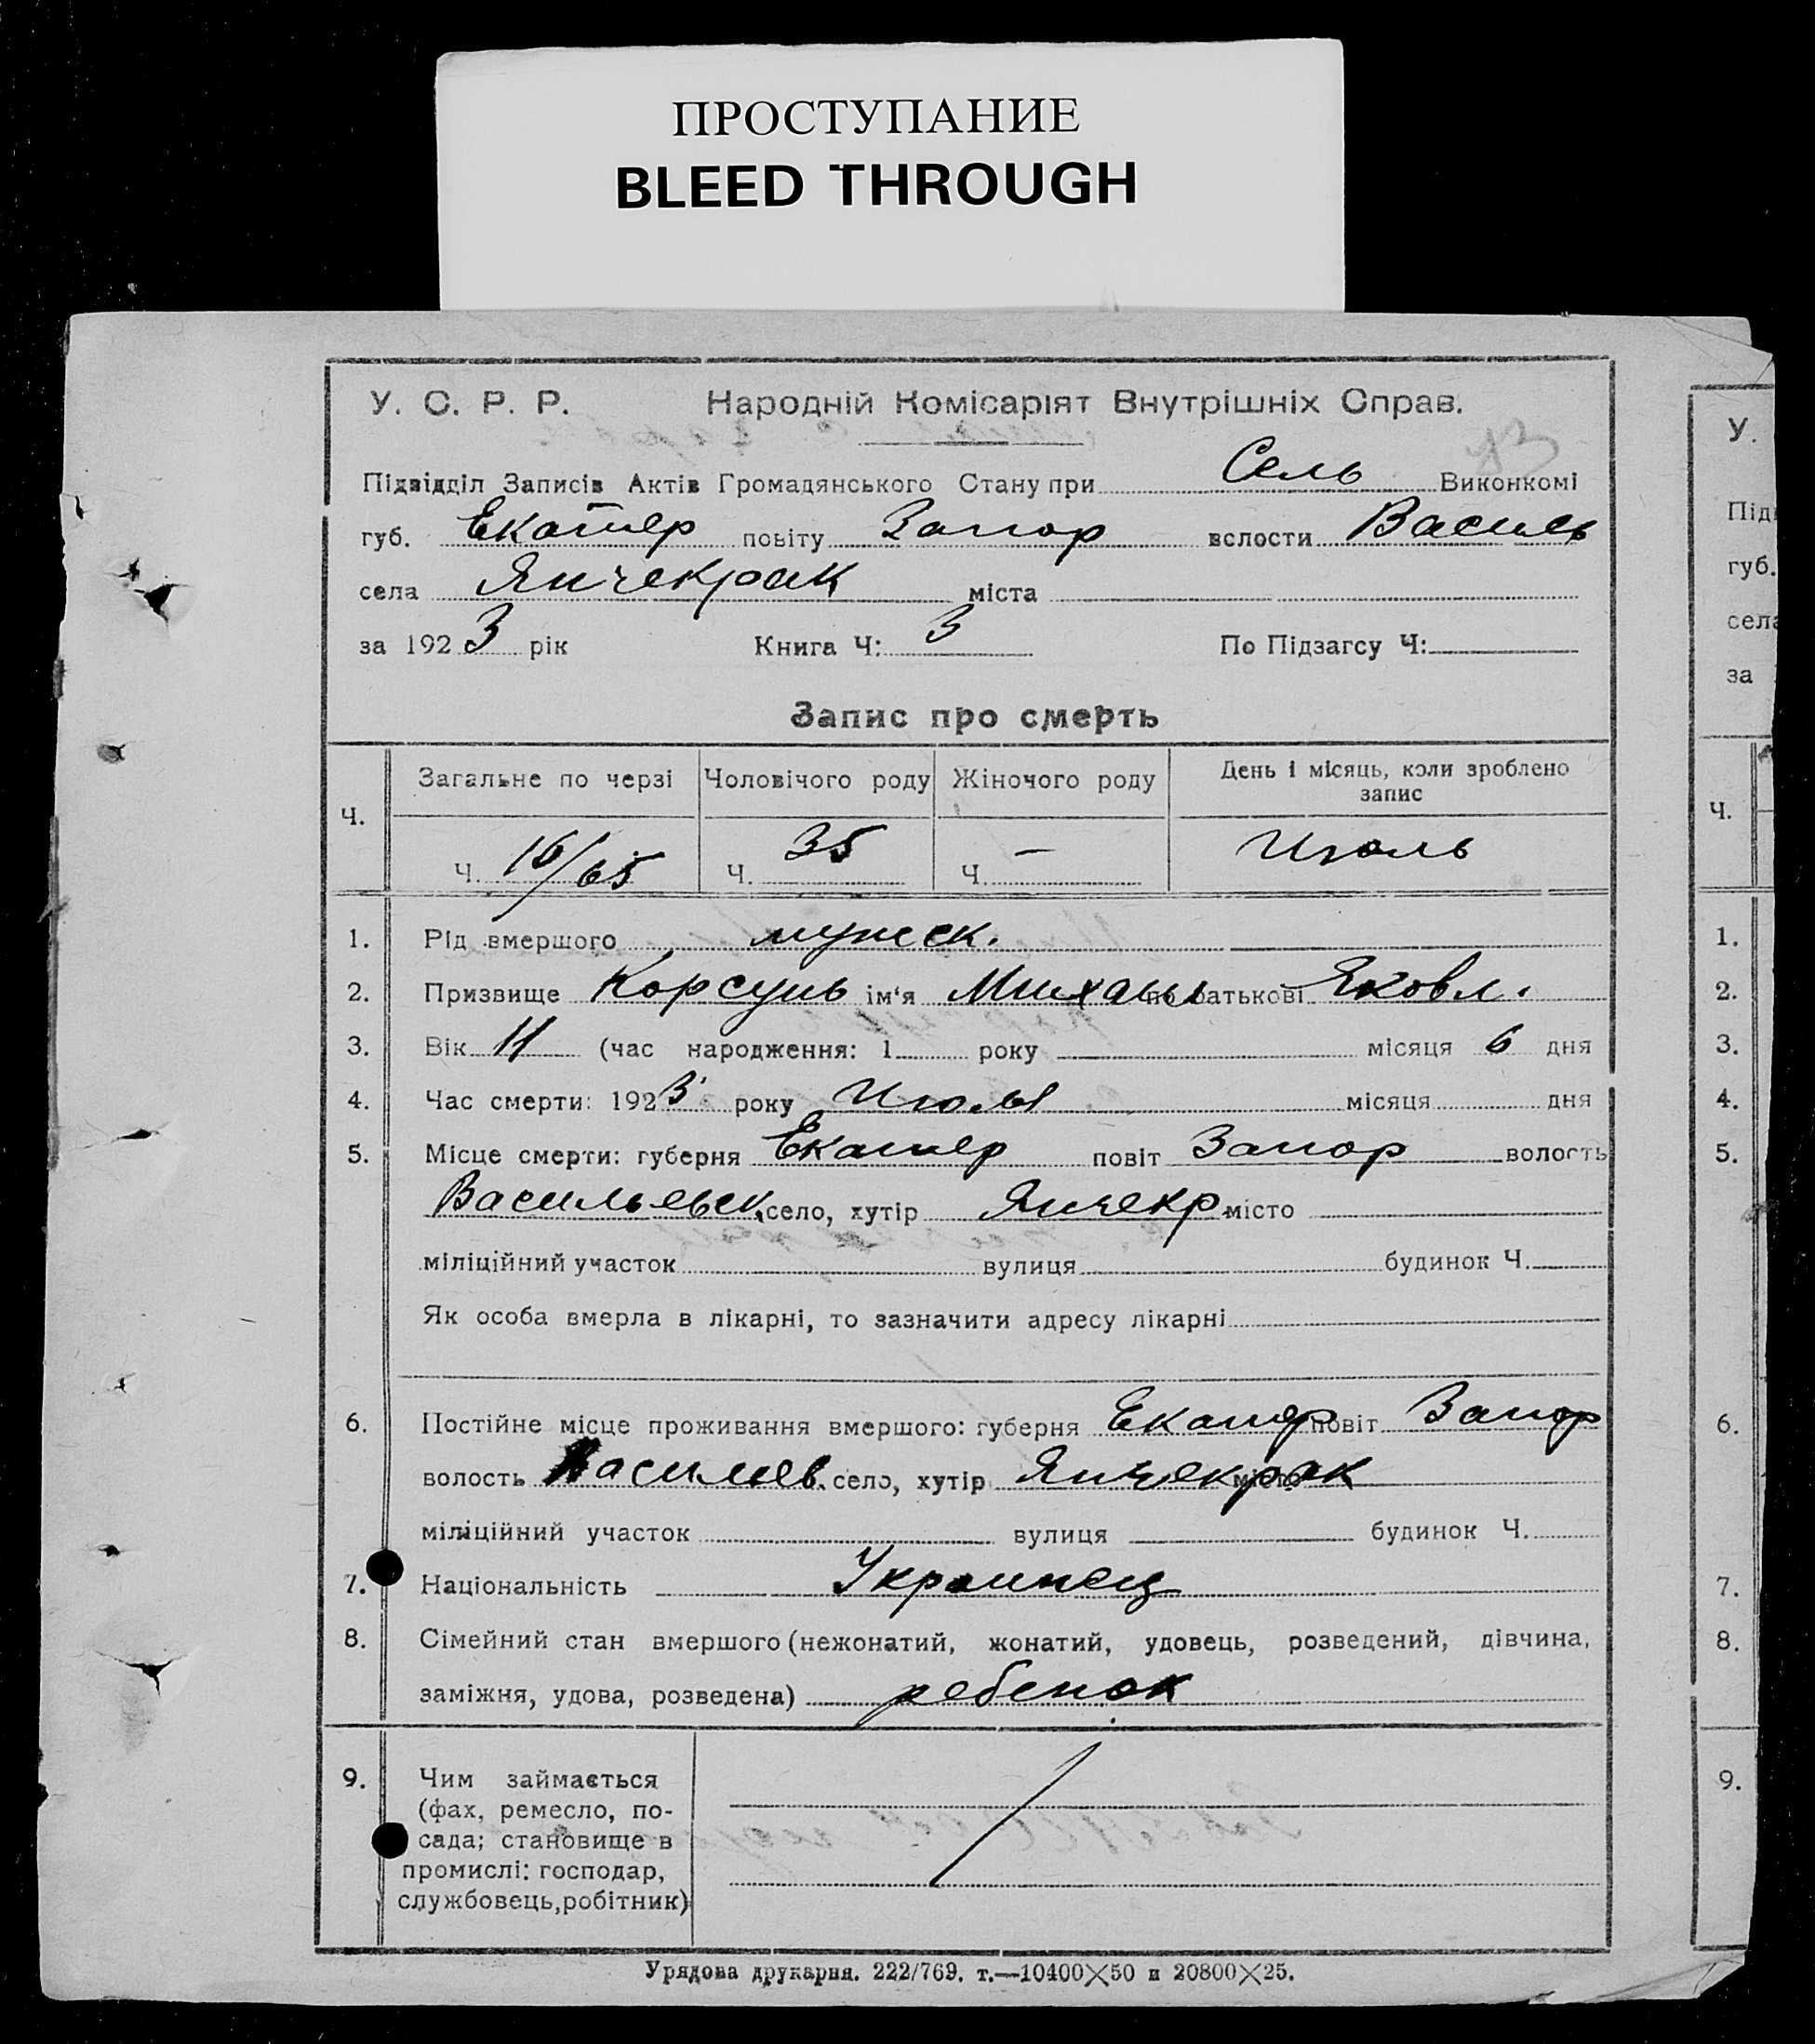 ПРОСТУПАНИЕ
BLEED THROUGH
У. С. Р. Р. Народній Комісаріят Внутрішніх Справ.
Підвідділ Записів Актів Громадянського Стану при Сель Виконкомі
губ. Екатер повіту Запор волости Василь
села Янчекрак міста
за 1923 рік Книга Ч: 3 По Підзагсу Ч:
Запис про смерть
Ч. Загальне по черзі Чоловічого роду Жіночого роду День і місяць, коли зроблено запис
Ч. 16/65 Ч. 35 Ч. — Июль
1. Рід вмершого мужеск.
2. Призвище Корсунь ім‘я Михаил по батькові Яковл.
3. Вік 11 (час народження: 1 року місяця 6 дня
4. Час смерти: 1923 року Июля місяця дня
5. Місце смерти: губерня Екатер повіт Запор волость
Васильевск. село, хутір Янчекр. місто
міліційний участок вулиця будинок Ч.
Як особа вмерла в лікарні, то зазначити адресу лікарні
6. Постійне місце проживання вмершого: губерня Екатер повіт Запор
волость Василев. село, хутір Янчекрак місто
міліційний участок вулиця будинок Ч.
7. Національність Украинец
8. Сімейний стан вмершого (нежонатий, жонатий, удовець, розведений, дівчина,
заміжня, удова, розведена) ребенок
9. Чим займається
(фах, ремесло, по-
сада; становище в
промислі: господар,
службовець, робітник)
Урядова друкарня. 222/769. т.—10400×50 и 20800×25.
У.
Підв
губ.
села
за
Ч.
1.
2.
3.
4.
5.
6.
7.
8.
9.